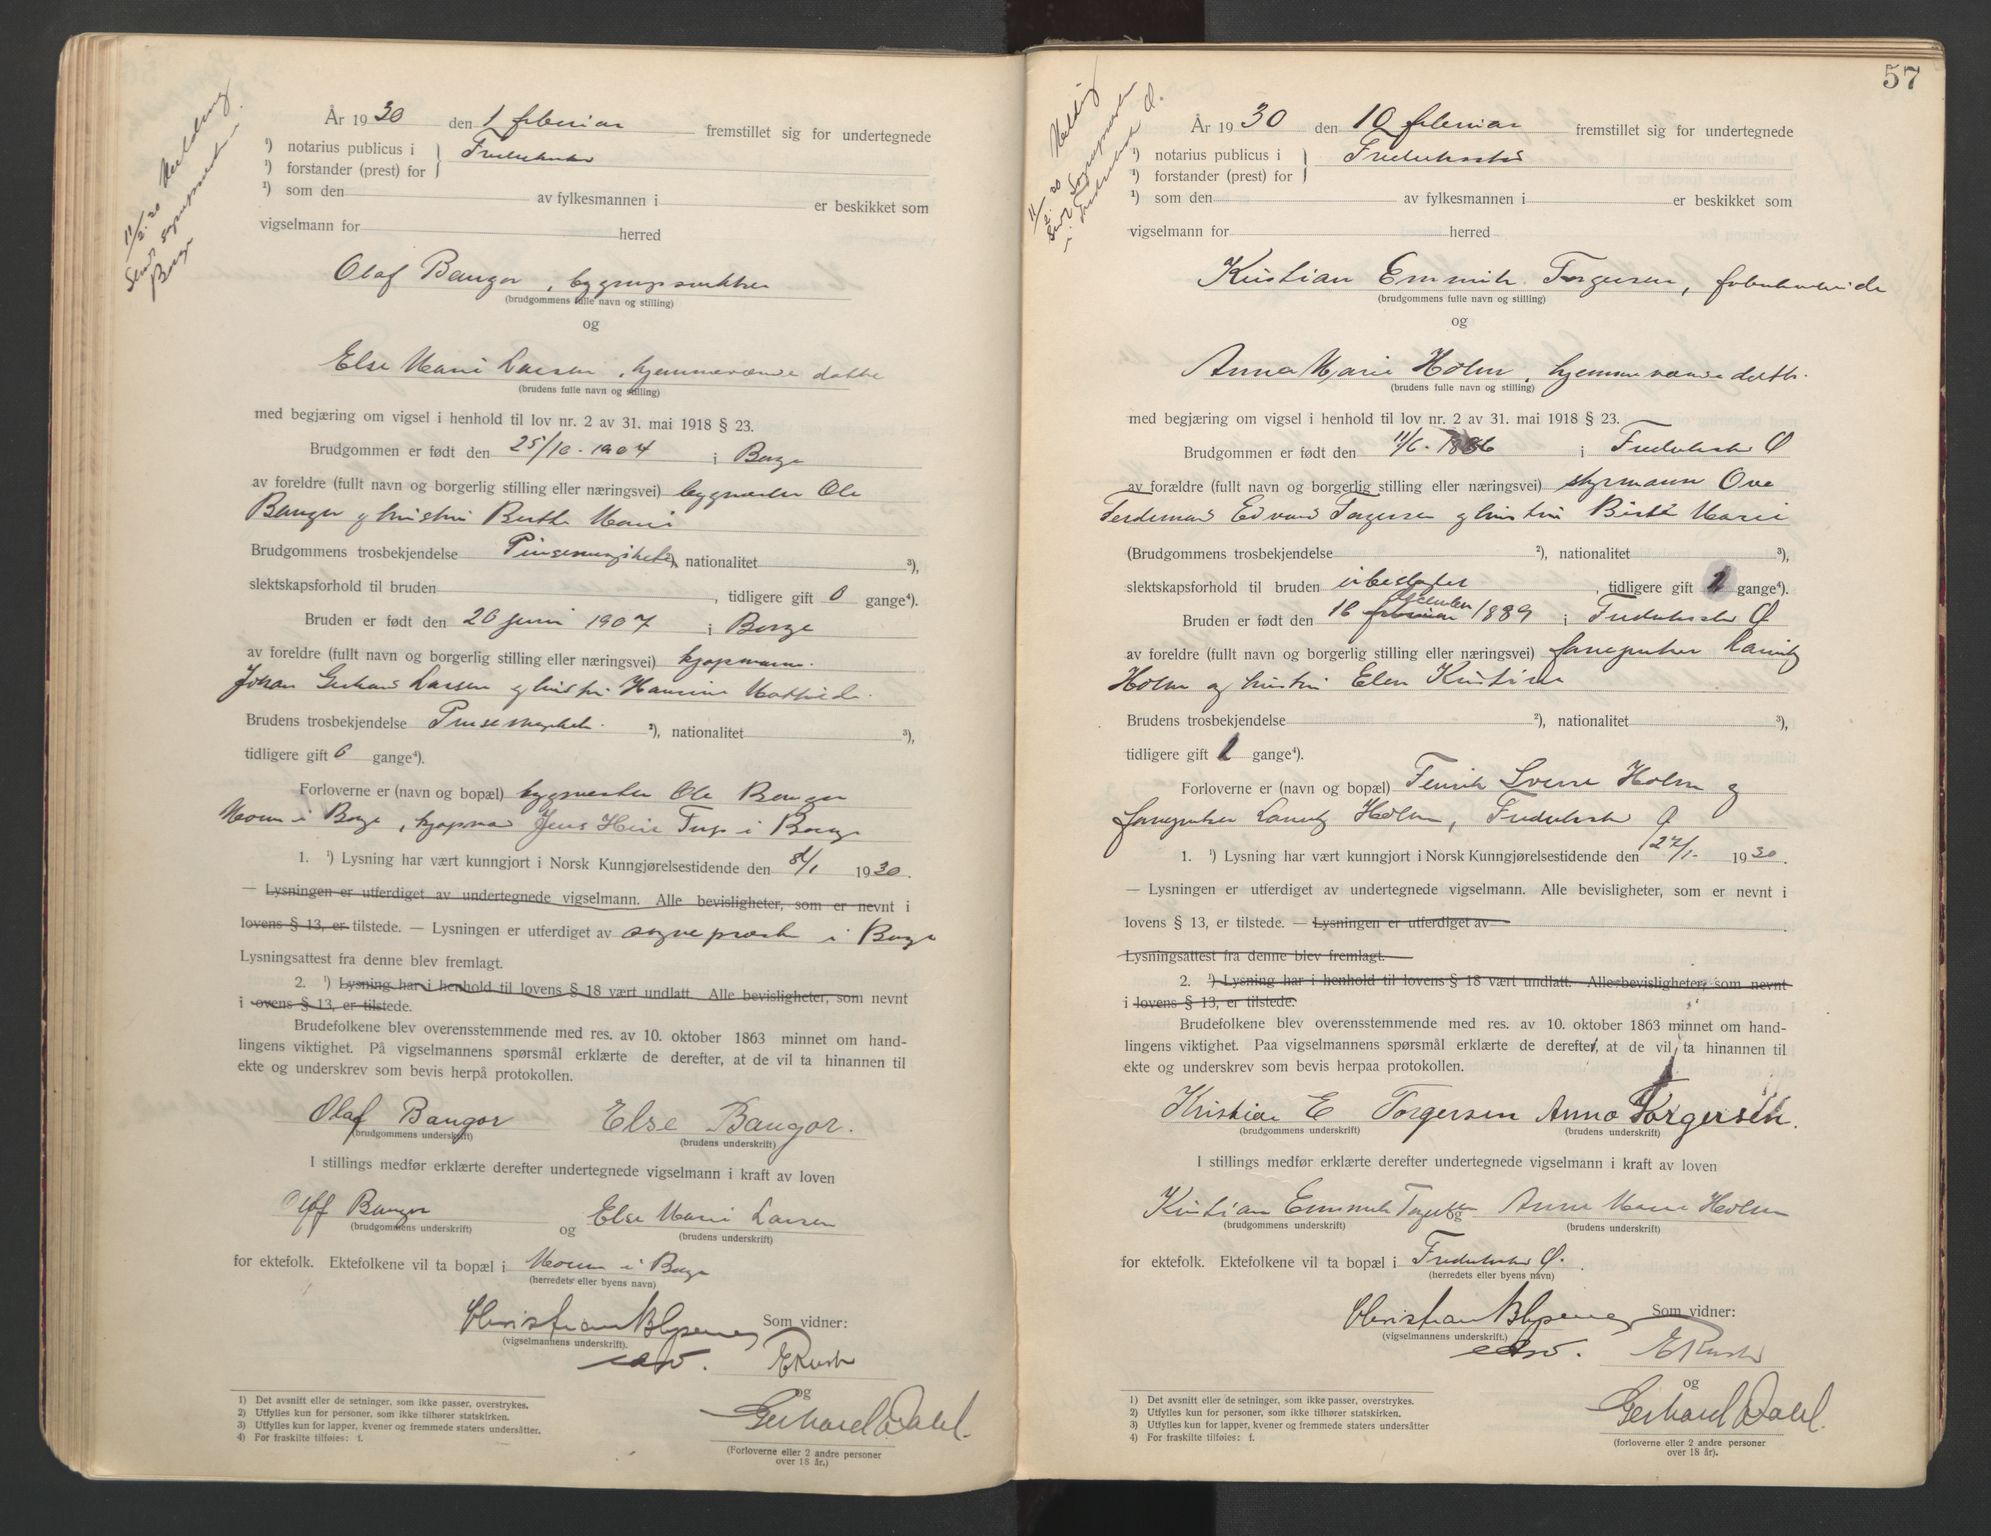 11/2. 30 Melding
Sendt Sognepresten
Borge
År 1930 den 1 februar fremstillet sig for undertegnede
¹) notarius publicus i Fredrikstad
¹) forstander (prest) for
¹) som den av fylkesmannen i er beskikket som
vigselmann for herred
Olaf Bangor,
(brudgommens fulle navn og stilling)
og
Else Marie Larsen, hjemmeværende datter
(brudens fulle navn og stilling)
med begjæring om vigsel i henhold til lov nr. 2 av 31. mai 1918 § 23.
Brudgommen er født den 25/10 - 1904 i Borge
av foreldre (fullt navn og borgerlig stilling eller næringsvei) bygmester Ole
Bangor og hustru Berthe Marie
Brudgommens trosbekjendelse Pinsemenigheten ²), nationalitet ³),
slektskapsforhold til bruden , tidligere gift 0 gange⁴).
Bruden er født den 26 juni 1907 i Borge
av foreldre (fullt navn og borgerlig stilling eller næringsvei) kjøpmann
Johan Gerhard Larsen og hustru Hansine Mathilde.
Brudens trosbekjendelse Pinsemenigheten ²), nationalitet ³),
tidligere gift 0 gange⁴).
Forloverne er (navn og bopæl) bygmester Ole Bangor
Moum i Borge, kjøpmann Jens Henr. i Borge
1. ¹) Lysning har vært kunngjort i Norsk Kunngjørelsestidende den 8/1 1930.
— Lysningen er utferdiget av undertegnede vigselmann. Alle bevisligheter, som er nevnt i
lovens § 13, er tilstede. — Lysningen er utferdiget av sognepræsten i Borge
Lysningsattest fra denne blev fremlagt.
2. ¹) Lysning har i henhold til lovens § 18 vært undlatt. Alle bevisligheter, som nevnt
i lovens § 13, er tilstede.
Brudefolkene blev overensstemmende med res. av 10. oktober 1863 minnet om hand-
lingens viktighet. På vigselmannens spørsmål erklærte de derefter, at de vil ta hinannen til
ekte og underskrev som bevis herpå protokollen.
Olaf Bangor Else Bangor.
(brudgommens underskrift) (brudens underskrift)
I stillings medfør erklærte derefter undertegnede vigselmann i kraft av loven
Olaf Bangor og Else Marie Larsen
(brudgommens underskrift) (brudens underskrift)
for ektefolk. Ektefolkene vil ta bopæl i Moum i Borge
(herredets eller byens navn)
Som vidner:
(vigselmannens underskrift).
og
Gerhard Dahl.
(Forloverne eller 2 andre personer
over 18 år.)
1) Det avsnitt eller de setninger, som ikke passer, overstrykes.
2) Utfylles kun for personer, som ikke tilhører statskirken.
3) Utfylles kun for lapper, kvener og fremmede staters undersåtter.
4) For fraskilte tilføies: f.
57
11/2. 30 Melding
Sendt Sognepresten
i Fredrikstad Ø.
År 1930 den 10 februar fremstillet sig for undertegnede
¹) notarius publicus i Fredrikstad
¹) forstander (prest) for
¹) som den av fylkesmannen i er beskikket som
vigselmann for herred
Kristian Emmik Torgersen,
(brudgommens fulle navn og stilling)
og
Anna Marie Holm, hjemmeværende datter
(brudens fulle navn og stilling)
med begjæring om vigsel i henhold til lov nr. 2 av 31. mai 1918 § 23.
Brudgommen er født den 11/6 - 1886 i Fredrikstad Ø
av forældre (fullt navn og borgerlig stilling eller næringsvei) styrmann Ove
Ferdinand Edvard Torgersen og hustru Birthe Marie
(Brudgommens trosbekjendelse ²), nationalitet ³),
slektskapsforhold til bruden ubeslegtet, tidligere gift 1 gange⁴).
Bruden er født den 16 februar 1889 i Fredrikstad Ø
av foreldre (fullt navn og borgerlig stilling eller næringsvei) Lauritz
Holm og hustru Elen Kristine
Brudens trosbekjendelse ²), nationalitet ³),
tidligere gift 1 gange⁴).
Forloverne er (navn og bopæl) Fenrik Sverre Holm og
Lauritz Holm, Fredrikstad Ø
1. ¹) Lysning har vært kunngjort i Norsk Kunngjørelsestidende den 27/1- 1930.
— Lysningen er utferdiget av undertegnede vigselmann. Alle bevisligheter, som er nevnt i
lovens § 13, er tilstede. — Lysningen er utferdiget av
Lysningsattest fra denne blev fremlagt.
2. ¹) Lysning har i henhold til lovens § 18 vært undlatt. Alle bevisligheter, som nevnt
i lovens § 13, er tilstede.
Brudefolkene blev overensstemmende med res. av 10. oktober 1863 minnet om hand-
lingens viktighet. Paa vigselmannens spørsmål erklærte de derefter, at de vil ta hinannen til
ekte og underskrev som bevis herpaa protokollen.
Kristian E Torgersen Anna Torgersen.
(brudgommens underskrift) (brudens underskrift)
I stillings medfør erklærte derefter undertegnede vigselmann i kraft av loven
Kristian Emmik Torgersen og Anna Marie Holm
(brudgommens underskrift) (brudens underskrift)
for ektefolk. Ektefolkene vil ta bopæl i Fredrikstad Ø.
(herredets eller byens navn)
Som vidner:
(vigselmannens underskrift.)
og
Gerhard Dahl.
(forloverne eller 2 andre personer
over 18 år).
1) Det avsnitt eller de setninger, som ikke passer, overstrykes.
2) Utfylles kun for personer, som ikke tilhører statskirken.
3) Utfylles kun for lapper, kvener og fremmede staters undersåtter
4) For fraskilte tilføies: f.